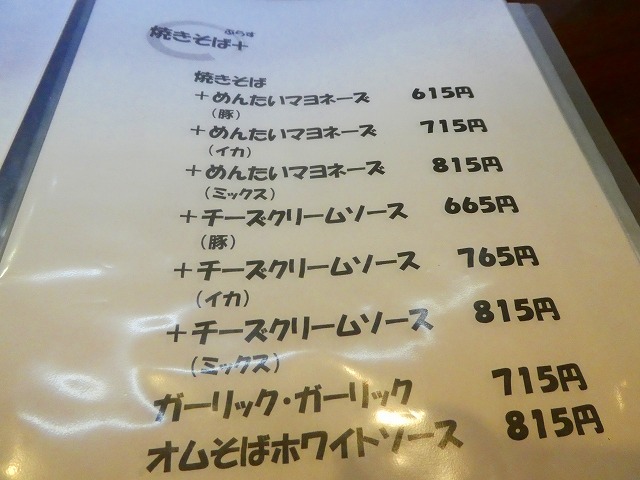 ぷらす
焼きそば+
焼きそば
+めんたいマヨネーズ 615円
(豚)
+めんたいマヨネーズ 715円
(イカ)
+めんたいマヨネーズ 815円
(ミックス)
+チーズクリームソース 665円
(豚)
+チーズクリームソース 765円
(イカ)
+チーズクリームソース 815円
(ミックス)
ガーリック・ガーリック 715円
オムそばホワイトソース 815円